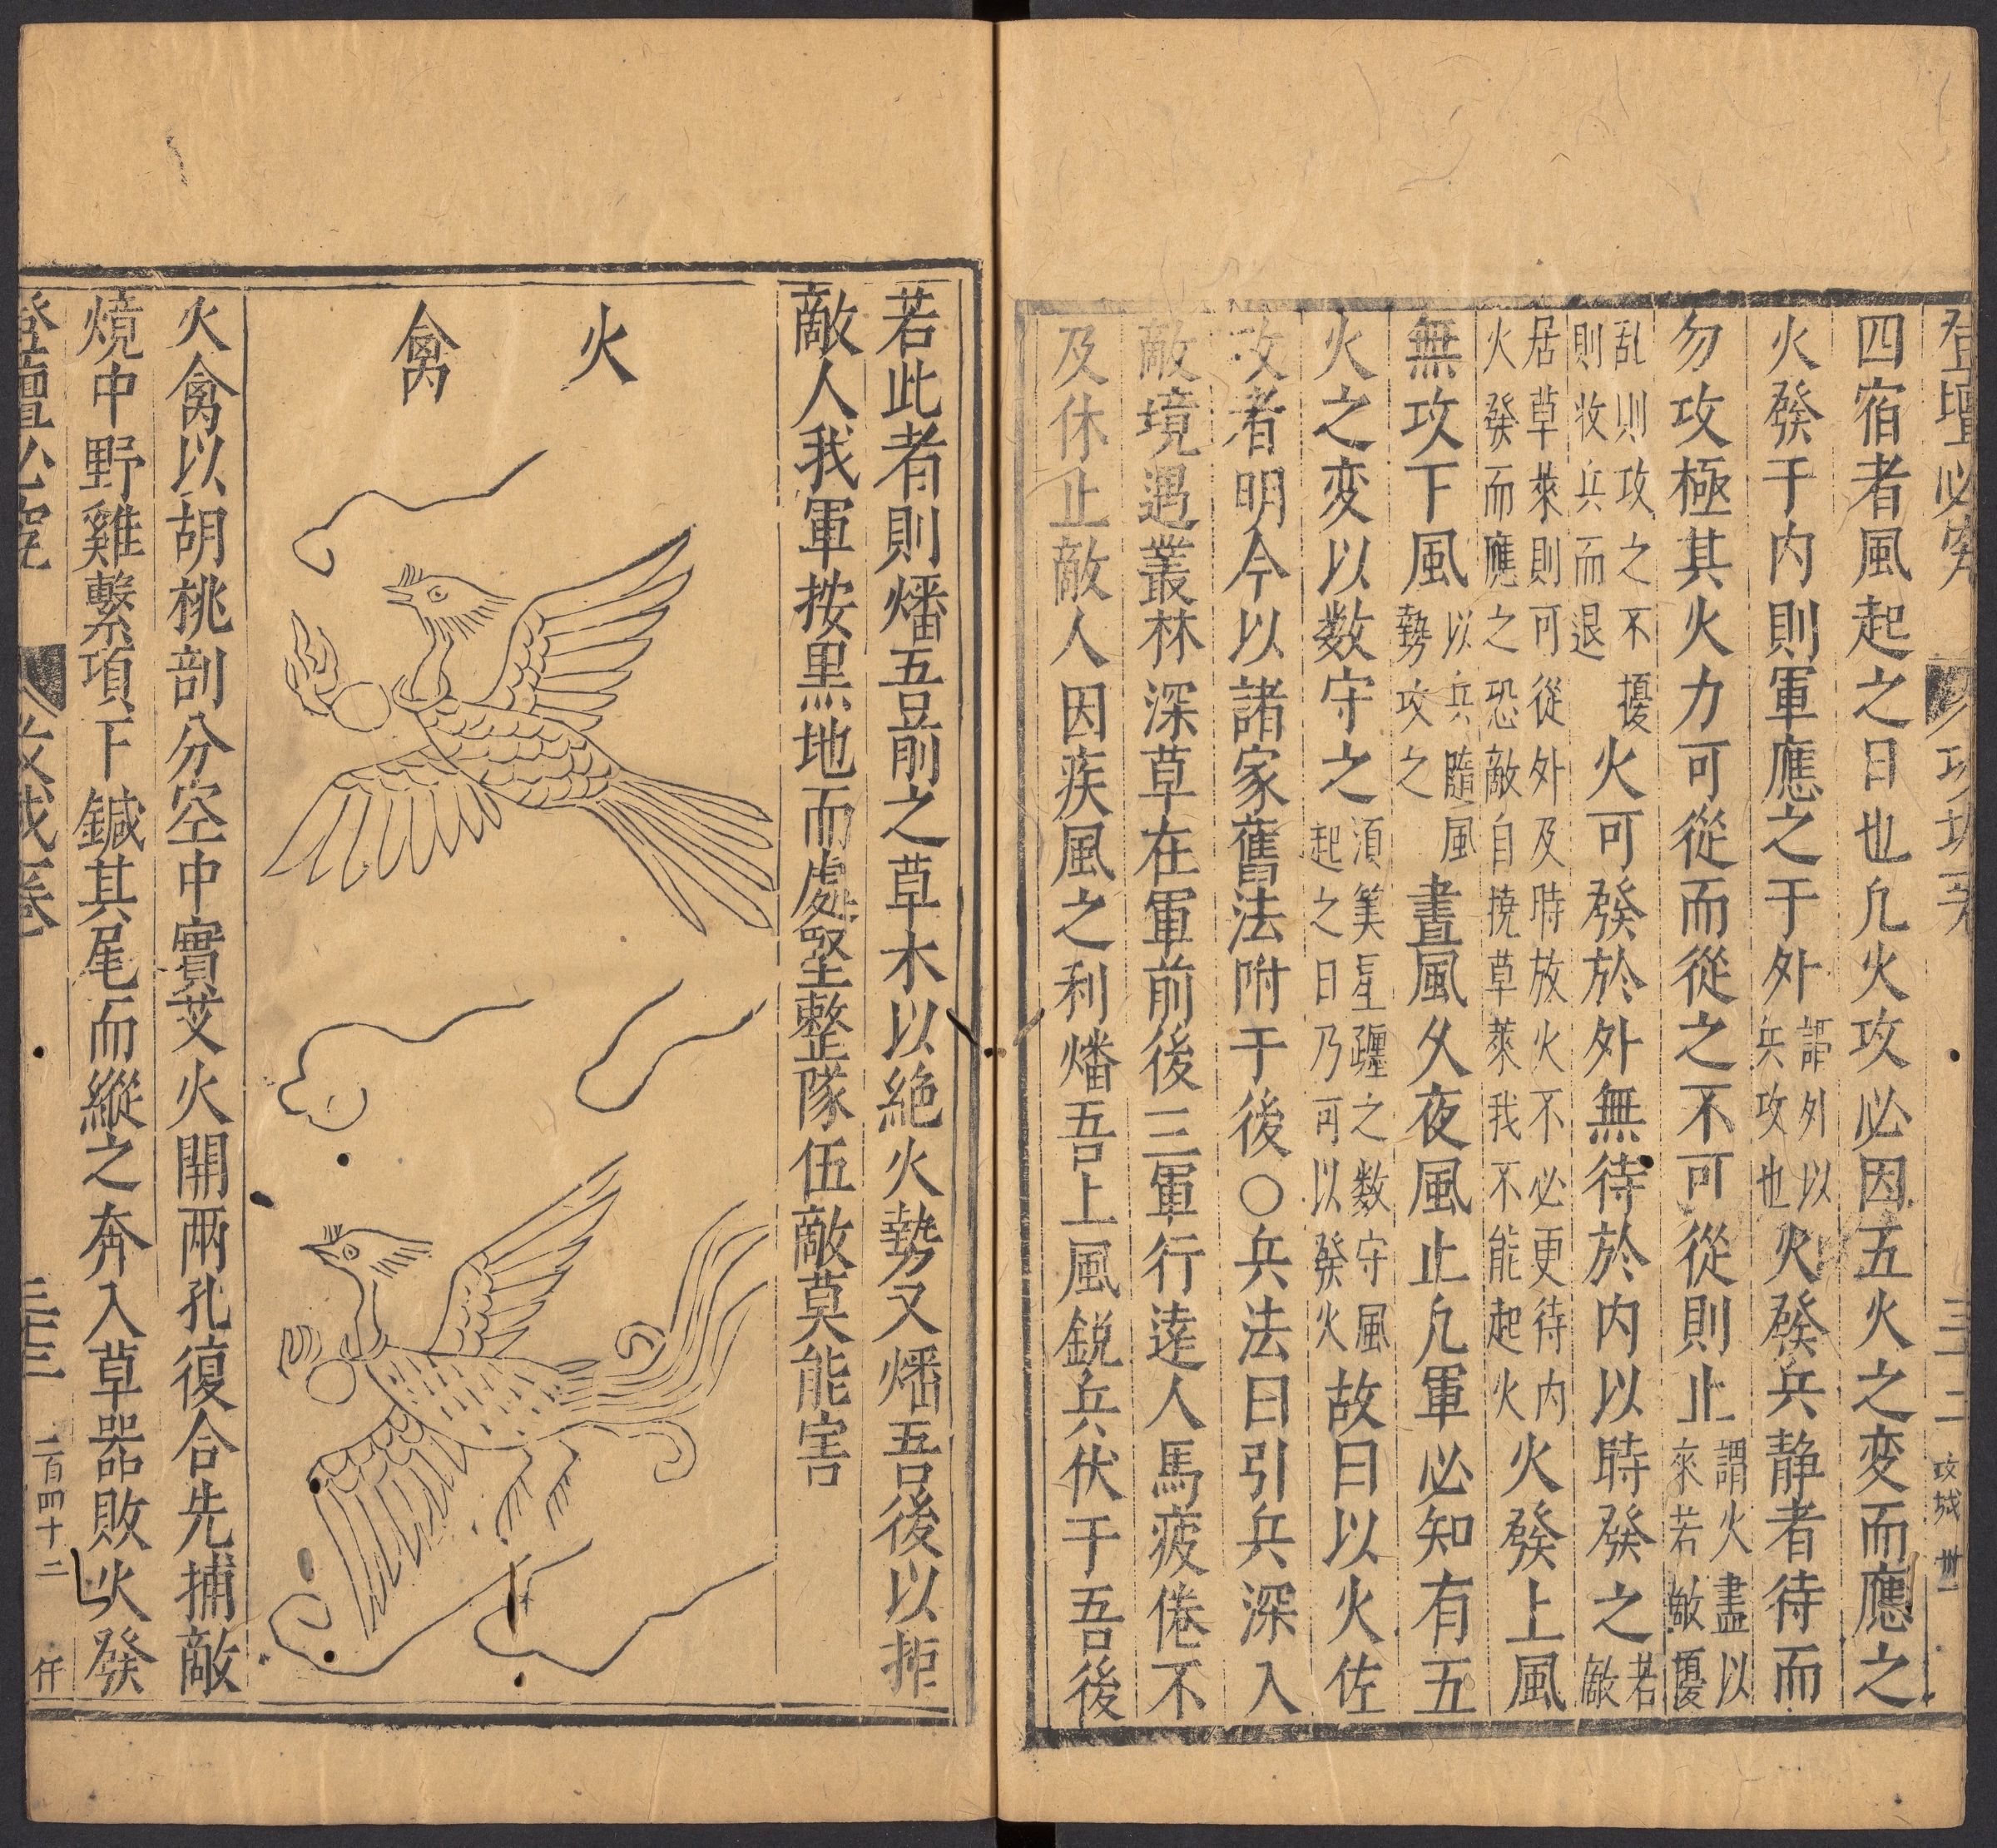 登壇必究 攻城卷 三十二 攻城 卅一
四宿者風起之日也凡火攻必因五火之変而應之
火發于内則軍應之于外謂外以兵攻也火發兵静者待而
勿攻極其火力可從而從之不可從則止謂火盡以來若敵擾
乱則攻之不擾則收兵而退火可發於外無待於内以時發之若敵
居草萊則可從外及時放火不必更待内火發而應之恐敵自撓草萊我不能起火火發上風
無攻下風以兵隨風勢攻之晝風久夜風止凡軍必知有五
火之変以数守之須筭星躔之数守風起之日乃可以發火故曰以火佐
攻者明今以諸家舊法附于後○兵法曰引兵深入
敵境遇叢林深草在軍前後三軍行遠人馬疲倦不
及休止敵人因疾風之利燔吾上風銳兵伏于吾後
若此者則燔吾前之草木以絶火勢又燔吾後以拒
敵人我軍按黒地而處堅整隊伍敵莫能害
火禽
火禽以胡桃剖分空中實艾火開兩孔復合先捕敵
境中野雞繫項下鍼其尾而縱之奔入草器敗火發
登壇必究 攻城卷 三十三 二百四十二 仟